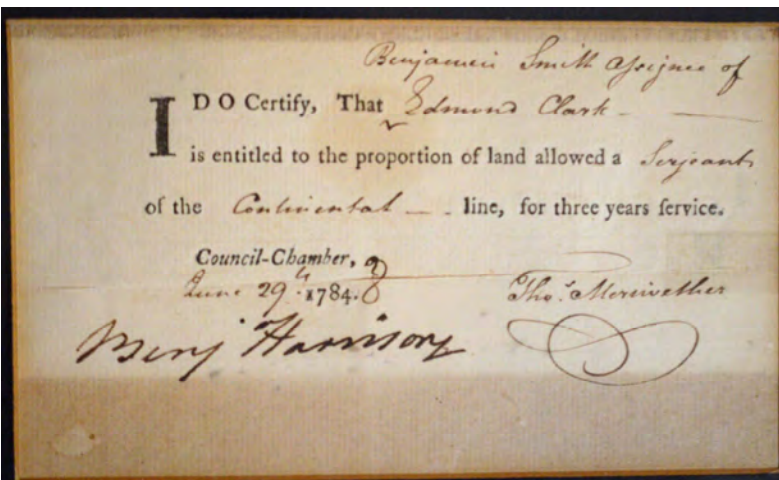 Benjamin Smith assignee of
I DO Certify, That Edmond Clark
is entitled to the proportion of land allowed a Serjeant
of the Continental line, for three years ſervice.
Council-Chamber,
June 29th 1784.
Thos. Meriwether
Benj Harrison